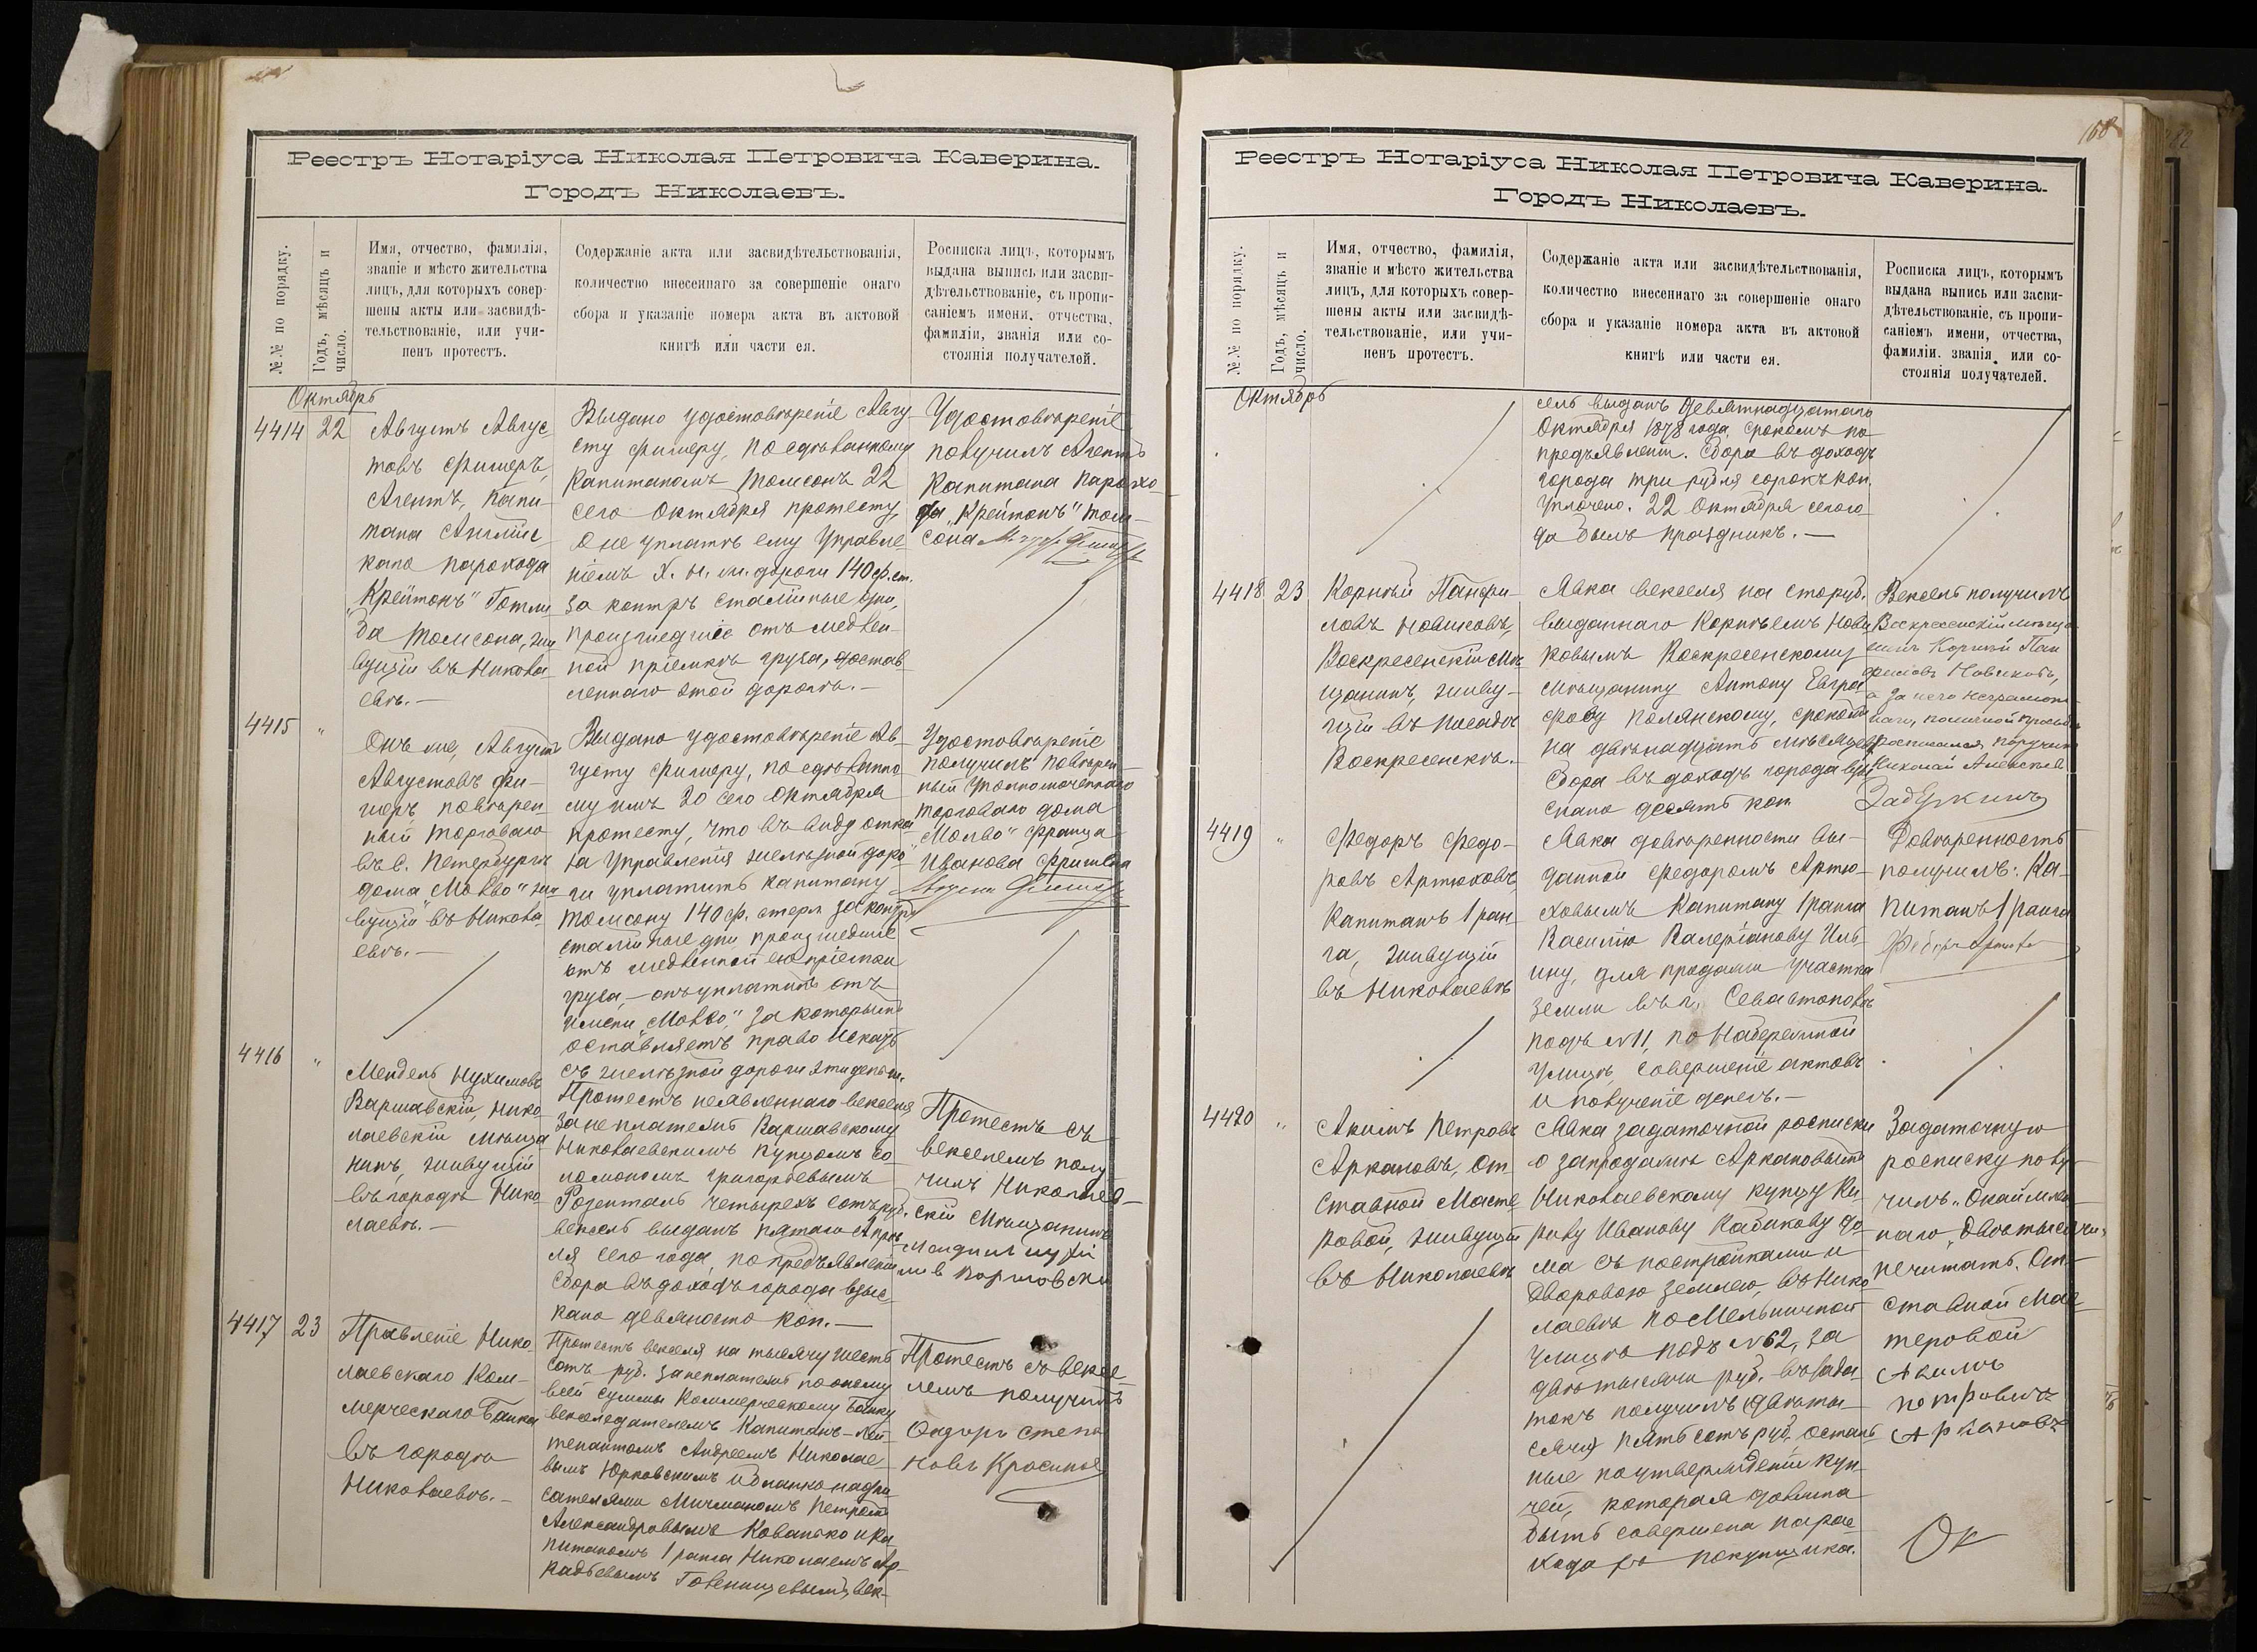 Реестръ Нотаріуса Николая Петровича Каверина.
Городъ Николаевъ.
№№ по порядку.
Годъ, мѣсяцъ и
число.
Имя, отчество, фамилія,
званіе и мѣсто жительства
лицъ, для которыхъ совер-
шены акты или засвидѣ-
тельствованіе, или учи-
ненъ протестъ.
Содержаніе акта или засвидѣтельствованія,
количество внесеннаго за совершеніе онаго
сбора и указаніе номера акта въ актовой
книгѣ или части ея.
Росписка лицъ, которымъ
выдана выпись или засви-
дѣтельствованіе, съ пропи-
саніемъ имени, отчества,
фамиліи, званія или со-
стоянія получателей.
Октябрь
4414
22
Августъ Авгус
товъ Фишеръ,
Агентъ, Капи-
тана Англійс
каго парохода
„Крейтонъ" Готли
ба Томсона, жи
вущій въ Никола
евѣ. —
Выдано удостовѣреніе Авгу
сту Фишеру, по сдѣланному
Капитаномъ Томсонъ 22
сего Октября протесту,
о не уплатѣ ему Управле
ніемъ Х. Н. ж. дороги 140 ф. ст.
за контръ сталійные дни,
происшедшіе отъ медлен-
ной пріемки груза, достав
леннаго этой дорогѣ. —
Удостовѣреніе
получилъ Агентъ
Капитана парохо
да „Крейтонъ" Том-
сона
4415
"
Онъ же, Августъ
Августовъ Фи-
шеръ, повѣрен-
ный торговаго
въ С. Петербургѣ
дома „Молво" жи
вущій въ Никола
евѣ. —
Выдано удостовѣреніе Ав-
густу Фишеру, по сдѣланно
му имъ 20 сего Октября
протесту, что въ виду отка
за Управленія желѣзной доро-
ги уплатить капитану
Томсону 140 ф. стерл. за контръ
сталійные дни происшедшіе
отъ медленной ею пріемки
груза, — онъ уплатитъ отъ
имени „Молво," за которымъ
оставляетъ право искать
съ желѣзной дороги эти деньги.
Удостовѣреніе
получилъ повѣрен-
ный уполномоченнаго
торговаго дома
„Молво" Франца
Иванова Фришвва
4416
"
Мендель Нухимовъ
Варшавскій, Нико
лаевскій мѣща
нинъ, живущій
въ городѣ Нико
лаевѣ. —
Протестъ неявленнаго векселя
за неплатежъ Варшавскому
Николаевскимъ купцомъ Со
ломономъ Григорьевымъ
Розенталь четырехъ сотъ руб.
вексель выданъ пятаго Апрѣ
ля сего года, по предъявленіи
Сбора въ доходъ города взыс-
кано девяносто коп. —
Протестъ съ
векселемъ полу
чилъ Николаев-
скій мѣщанинъ
4417
23
Правленіе Нико-
лаевскаго Ком-
мерческаго Банка
въ городѣ
Николаевѣ. —
Протестъ векселя на тысячу шесть
сотъ руб. за неплатежъ по оному
всей суммы Коммерческому Банку
векселедателемъ Капитанъ-Лей-
тенантомъ Андреемъ Николае-
вымъ Юрковскимъ и бланконадпи
сателями Мичманомъ Петромъ
Александровымъ Ковалько и Ка
питаномъ 1 ранга Николаемъ Ар-
кадьевымъ Голенищевымъ, век-
Протестъ съ вексе
лемъ получилъ
Ѳадоръ Степа
новъ Красильн
168
Реестръ Нотаріуса Николая Петровича Каверина.
Городъ Николаевъ.
№№ по порядку.
Годъ, мѣсяцъ и
число.
Имя, отчество, фамилія,
званіе и мѣсто жительства
лицъ, для которыхъ совер-
шены акты или засвидѣ-
тельствованіе, или учи-
ненъ протестъ.
Содержаніе акта или засвидѣтельствованія,
количество внесеннаго за совершеніе онаго
сбора и указаніе номера акта въ актовой
книгѣ или части ея.
Росписка лицъ, которымъ
выдана выпись или засви-
дѣтельствованіе, съ пропи-
саніемъ имени, отчества,
фамиліи, званія или со-
стоянія получателей.
Октябрь
сель выданъ девятнадцатаго
Октября 1878 года, срокомъ по
предъявленіи. Сбора въ доходъ
города три рубля сорокъ коп.
уплочено. 22 Октября сего го-
да былъ праздникъ. —
4418
23
Корнѣй Панфи-
ловъ Новиковъ,
Воскресенскій мѣ
щанинъ, живу-
щій въ посадѣ
Воскресенскѣ. —
Явка векселя на сто руб.
выданнаго Корнѣемъ Нови
ковымъ Воскресенскому
мѣщанину Антону Евгра-
фову Полянскому, срокомъ
на двѣнадцать мѣсяцевъ
Сбора въ доходъ города взы
скано десять коп
Вексель получилъ
Воскресенскій мѣща
нинъ Корнѣй Пан
филовъ Новиковъ,
а за него неграмот-
наго, по личной просьбѣ
росписался поручикъ
Николай Алексѣевъ
Задушкинъ
4419
"
Федоръ Федо-
ровъ Артюховъ
Капитанъ 1 ран-
га, живущій
въ Николаевѣ
Явка довѣренности вы-
данной Федоромъ Артю-
ховымъ Капитану 1 ранга
Василію Валеріанову Иль-
ину, для продажи участка
земли въ г. Севастополѣ
подъ № 11, по Набережной
улицѣ, совершеніе актовъ
и полученіе денегъ. —
Довѣренность
получилъ: Ка-
питанъ 1 ранга
4420
"
Акимъ Петровъ
Аркановъ, от
ставной Масте
ровой, живущій
въ Николаевѣ
Явка задаточной росписки
о запродажѣ Аркановымъ
Николаевскому купцу Ки-
рилу Иванову Кабикову до-
ма съ постройками и
дворовою землею, въ Нико
лаевѣ по Мельничной
улицѣ подъ № 62, за
двѣ тысячи руб. въ зада-
токъ получилъ (двѣ ты-
сячи) пять сотъ руб. осталь
ные по утвержденіи куп-
чей, которая должна
быть совершена на рас-
ходъ покупщика.
Задаточную
росписку полу-
чилъ. Окаймлен
наго „двѣ тысячи"
не читать. От-
ставной Мас-
теровой
Акимъ
петровичъ
Аркановъ